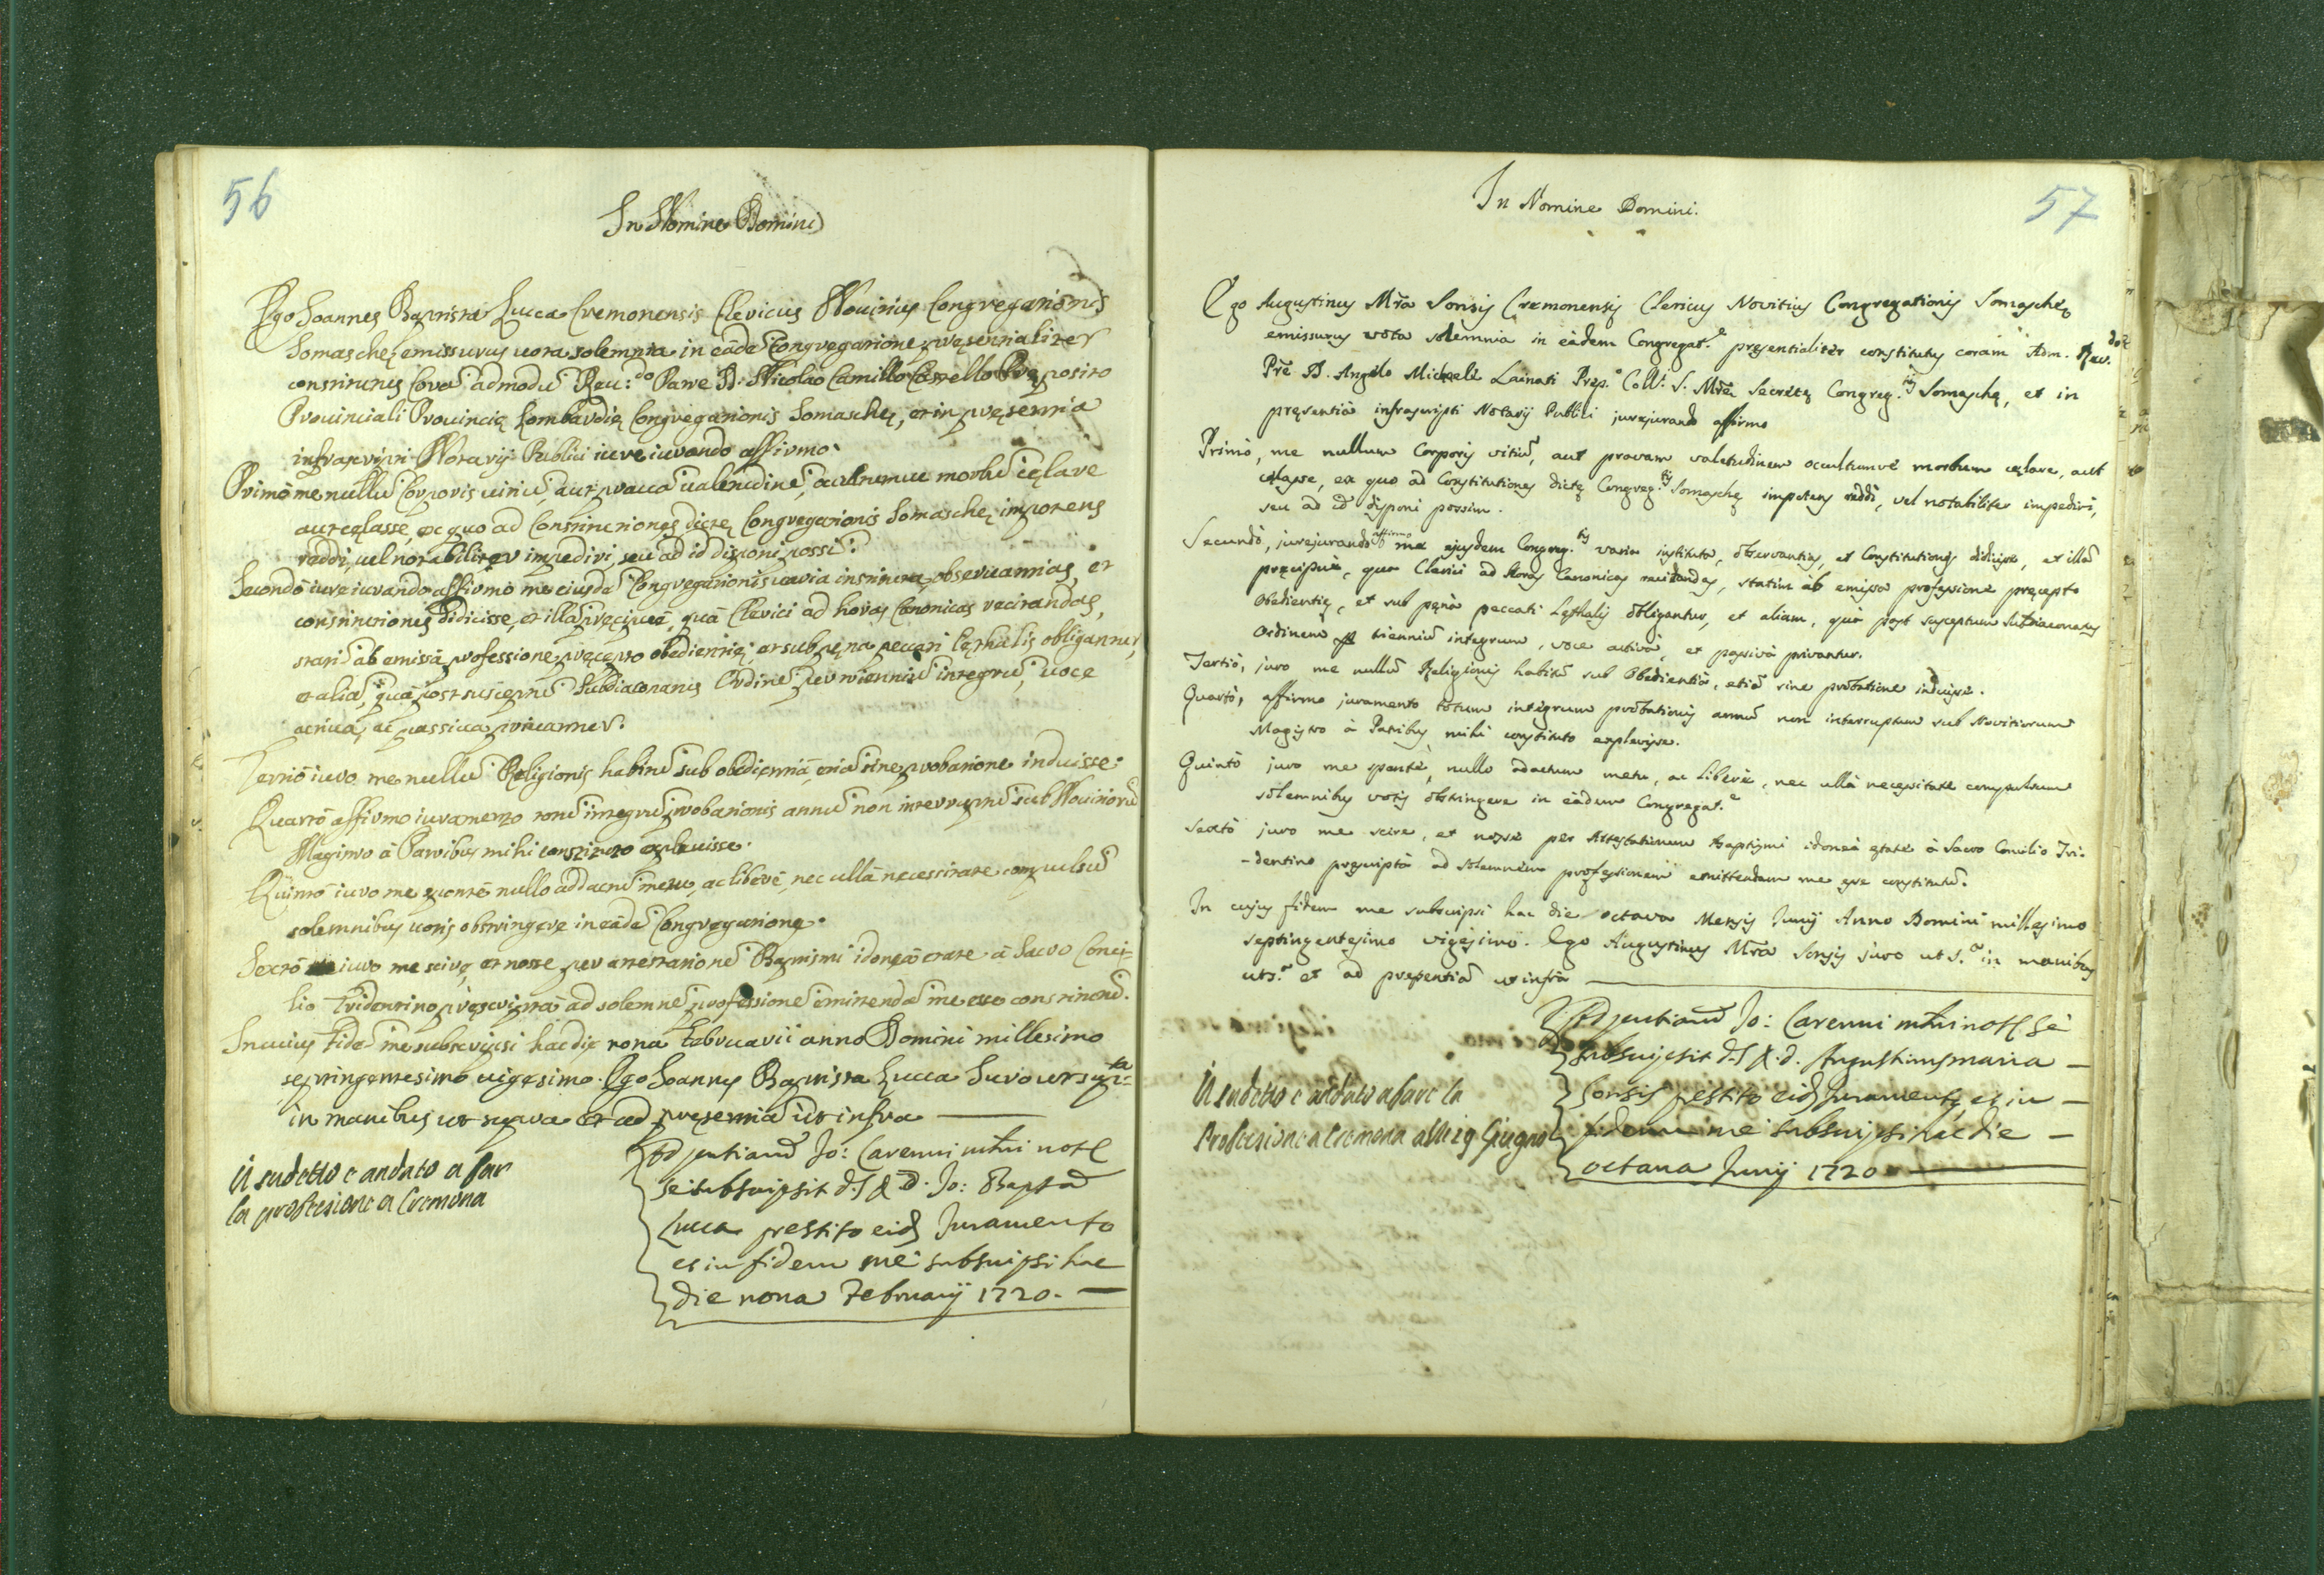 56
In Nomine Domini
Ego Joannes Baptista Lucca Cremonensis Clericus Novitius Congregationis
Somaschę emissurus uota solemnia in eade Congregatione pręsentialiter
constitutus Cora admodu Reu:do Patre D. Nicolao Camillo Castello Prę posito
Prouinciali Prouincię Lombardię Congregationis Somaschę, et in pręsentia
infrascripti Notarij Publici iure iurando affirmo.
Primò me nullu Corporis uitiu, aut praua ualetudine, ocultumue morbu cęlare
aut cęlasse, ex quo ad Constitutiones dictę Congregationis Somaschę impotens
reddi, uel notabiliter impediri, seu ad id disponi possi.
Secondò iure iurando affirmo me eiusde Congregationis uaria instituta, obseruantias, et
constitutiones didicisse, et illa pręcipuè, qua Clerici ad horas Canonicas recitandas,
stati ab emissa professione, pręcepto obedientię, et sub pęna peccati lęthalis obligantur,
et alia, qua post susceptu Subdiaconatus Ordine per trienniu integru, uoce
actiua, ac passiua priuantur.
Tertiò iuro me nullu Religionis habitu sub obedientia, etia sine probatione induisse.
Quartò affirmo iuramento totu integru probationis annu non interruptu sub Nouitioru
Magistro à Patribus mihi constituto expleuisse.
Quintò iuro me spontè nullo addactu metu, ac liberè, nec ulla necessitate compulsu
solemnibus uotis obstringere in eade Congregatione.
Sextò iuro me scire, et nosse per attestatione Baptismi idonea ętate à Sacro Conci-
lio Tridentino pręscripta ad solemne professione emittenda me esse constitutu.
In cuius fide me subscripsi hac die nona Februarii anno Domini millesimo
septingentesimo uigesimo. Ego Joannes Baptista Lucca Juro ut supra
in manibus ut supra et ad pręsentia ut infra
Ad pntiam Jo: Carenni notę
se subscripsit d. S & D. Jo: Baptã
Lucca prestito eid Juramento
et in fidem me subscripsi hac
die nona Februarij 1720.
Il sudetto è andato a far
la professione a Cremona
57
In Nomine Domini.
Ego Augustinus Mra Sonsis Cremonensis Clericus Novitius Congregationis Somaschę
emissurus vota solemnia in eâdem Congregat.e pręsentialiter constitutus coram Adm. Rev.do
Pre D. Angelo Michaele Lainati Pręp.o Coll. S. Mrę Secretę Congreg.is Somaschę, et in
pręsentia infrascripti Notarij Publici jurejurando affirmo
Primò, me nullum Corporis vitiu, aut pravam valetudinem occultumvè morbum cęlare, aut
cęlasse, ex quo ad Constitutiones dictę Congreg.is Somaschę impotens reddi, vel notabiliter impediri,
seu ad id disponi possim.
Secundò, jurejurando affirmo me ejusdem Congreg.is varia instituta, observantias, et Constitutiones didicisse, et illa
pręcipuè, qua Clerici ad Horas Canonicas recitandas, statim ab emissa professione pręcepto
Obedientię, et sub pęna peccati Lęthalis obligantur, et aliam, qua post susceptum Subdiaconatus
Ordinem triennium integrum, voce activâ, et passivâ privantur.
Tertiò, juro me nullu Religionis habitu sub Obedientia, etia sine probatione induisse.
Quartò, affirmo juramento totum integrum probationis annu non interruptum sub Novitiorum
Magistro à Patribus mihi constituto explevisse.
Quintò juro me spontè, nullo adactum metu, ac liberè, nec ullâ necessitate compulsum
solemnibus votis obstringere in eâdem Congregat.e
Sextò juro me scire, et nosse per Attestationem Baptismi idoneâ ętate à Sacro Concilio Tri-
-dentino pręscripta ad solemnem professionem emittendam me esse constitutu.
In cujus fidem me subscripsi hac die octava Mensis Junij Anno Domini millesimo
septingentesimo vigesimo. Ego Augustinus Mra Sonsis juro ut S.a in manibus
ut s.a et ad pręsentia ut infra
Ad pntiam Jo: Carenni notę se
subscripsit d. S & d. Augustinus maria
Sonsis prestito eid Juramento, et in
fidem me subscripsi hac die
octaua Junij 1720
Il sudetto è andato a fare la
Professione a Cremona alli 19 Giugno